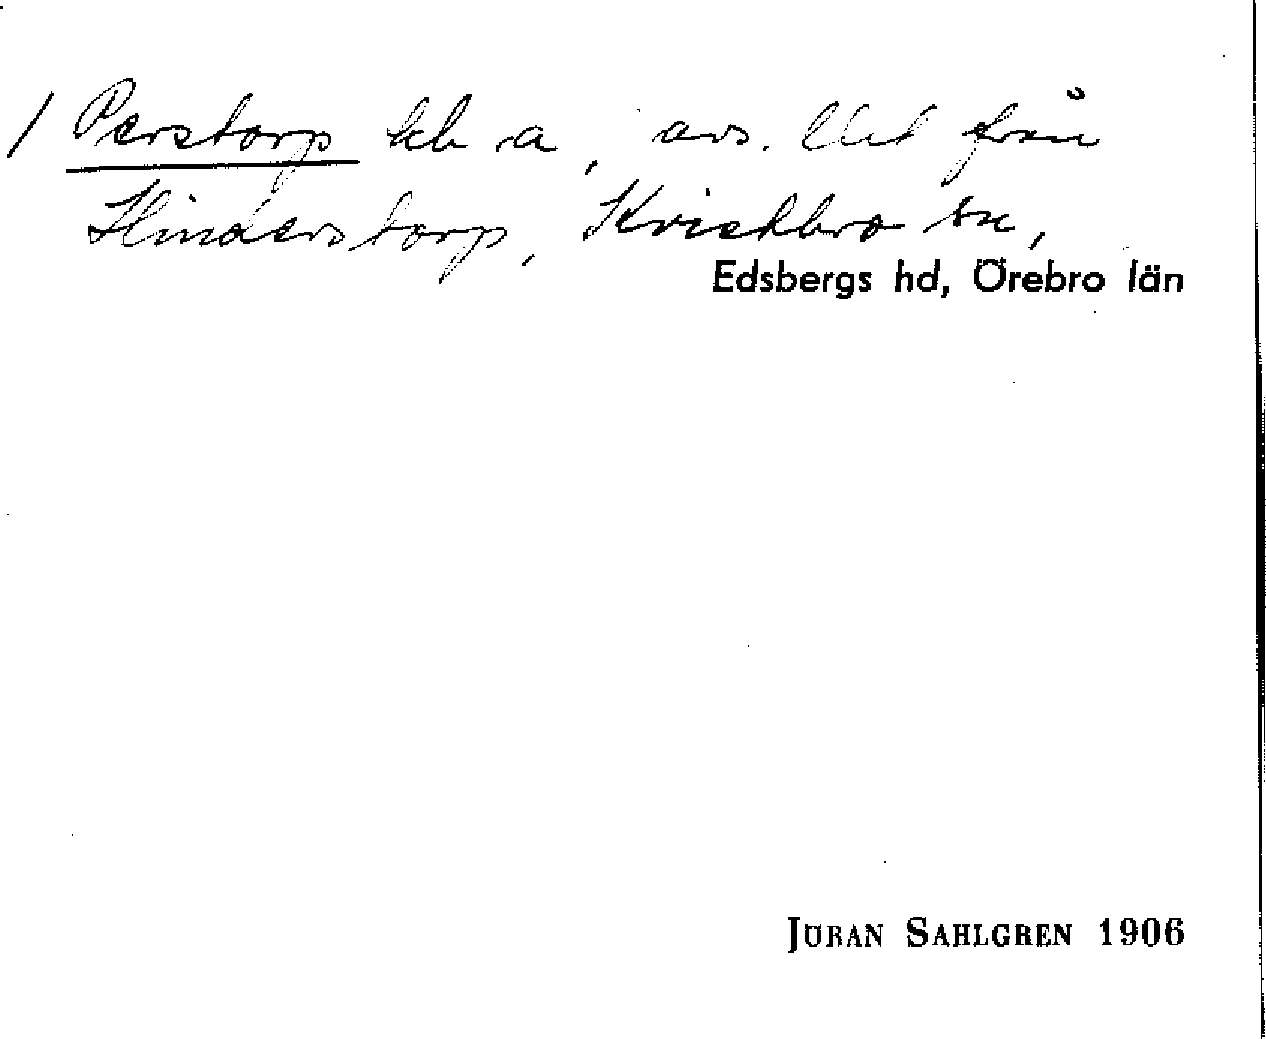 / Perstorp lbl a, avs. Utt från
Hinderstorp, Kvistbro sn,
Edsbergs hd, Örebro län
JÖRAN SAHLGREN 1906